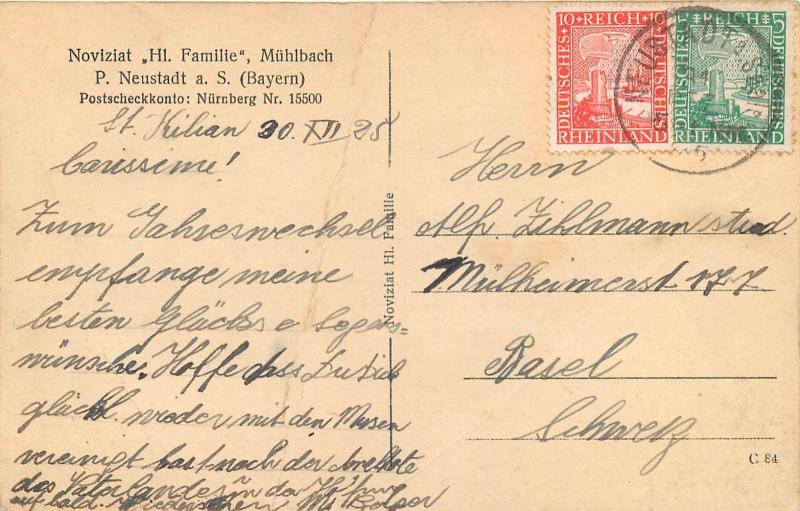 Noviziat „Hl. Familie“, Mühlbach
P. Neustadt a. S. (Bayern)
Postscheckkonto: Nürnberg Nr. 15500
St. Kilian 30. XII 25
Carissime!
Zum Jahreswechsel
empfange meine
besten Glücks e Segens-
wünsche. Hoffe dass Du Dich
glückl wieder mit den Musen
vereinigt hast nach der
des Vaterlandes in der
auf bald. Wiedersehen
Noviziat Hl. Familie
10 REICH 10
DEUTSCHES
DEUTSCHES
RHEINLAND
5 REICH 5
DEUTSCHES
DEUTSCHES
RHEINLAND
NEUSTADT
Herrn
Alf. Zihlmann stud.
Mülheimerst 177
Basel
Schweiz
C 84